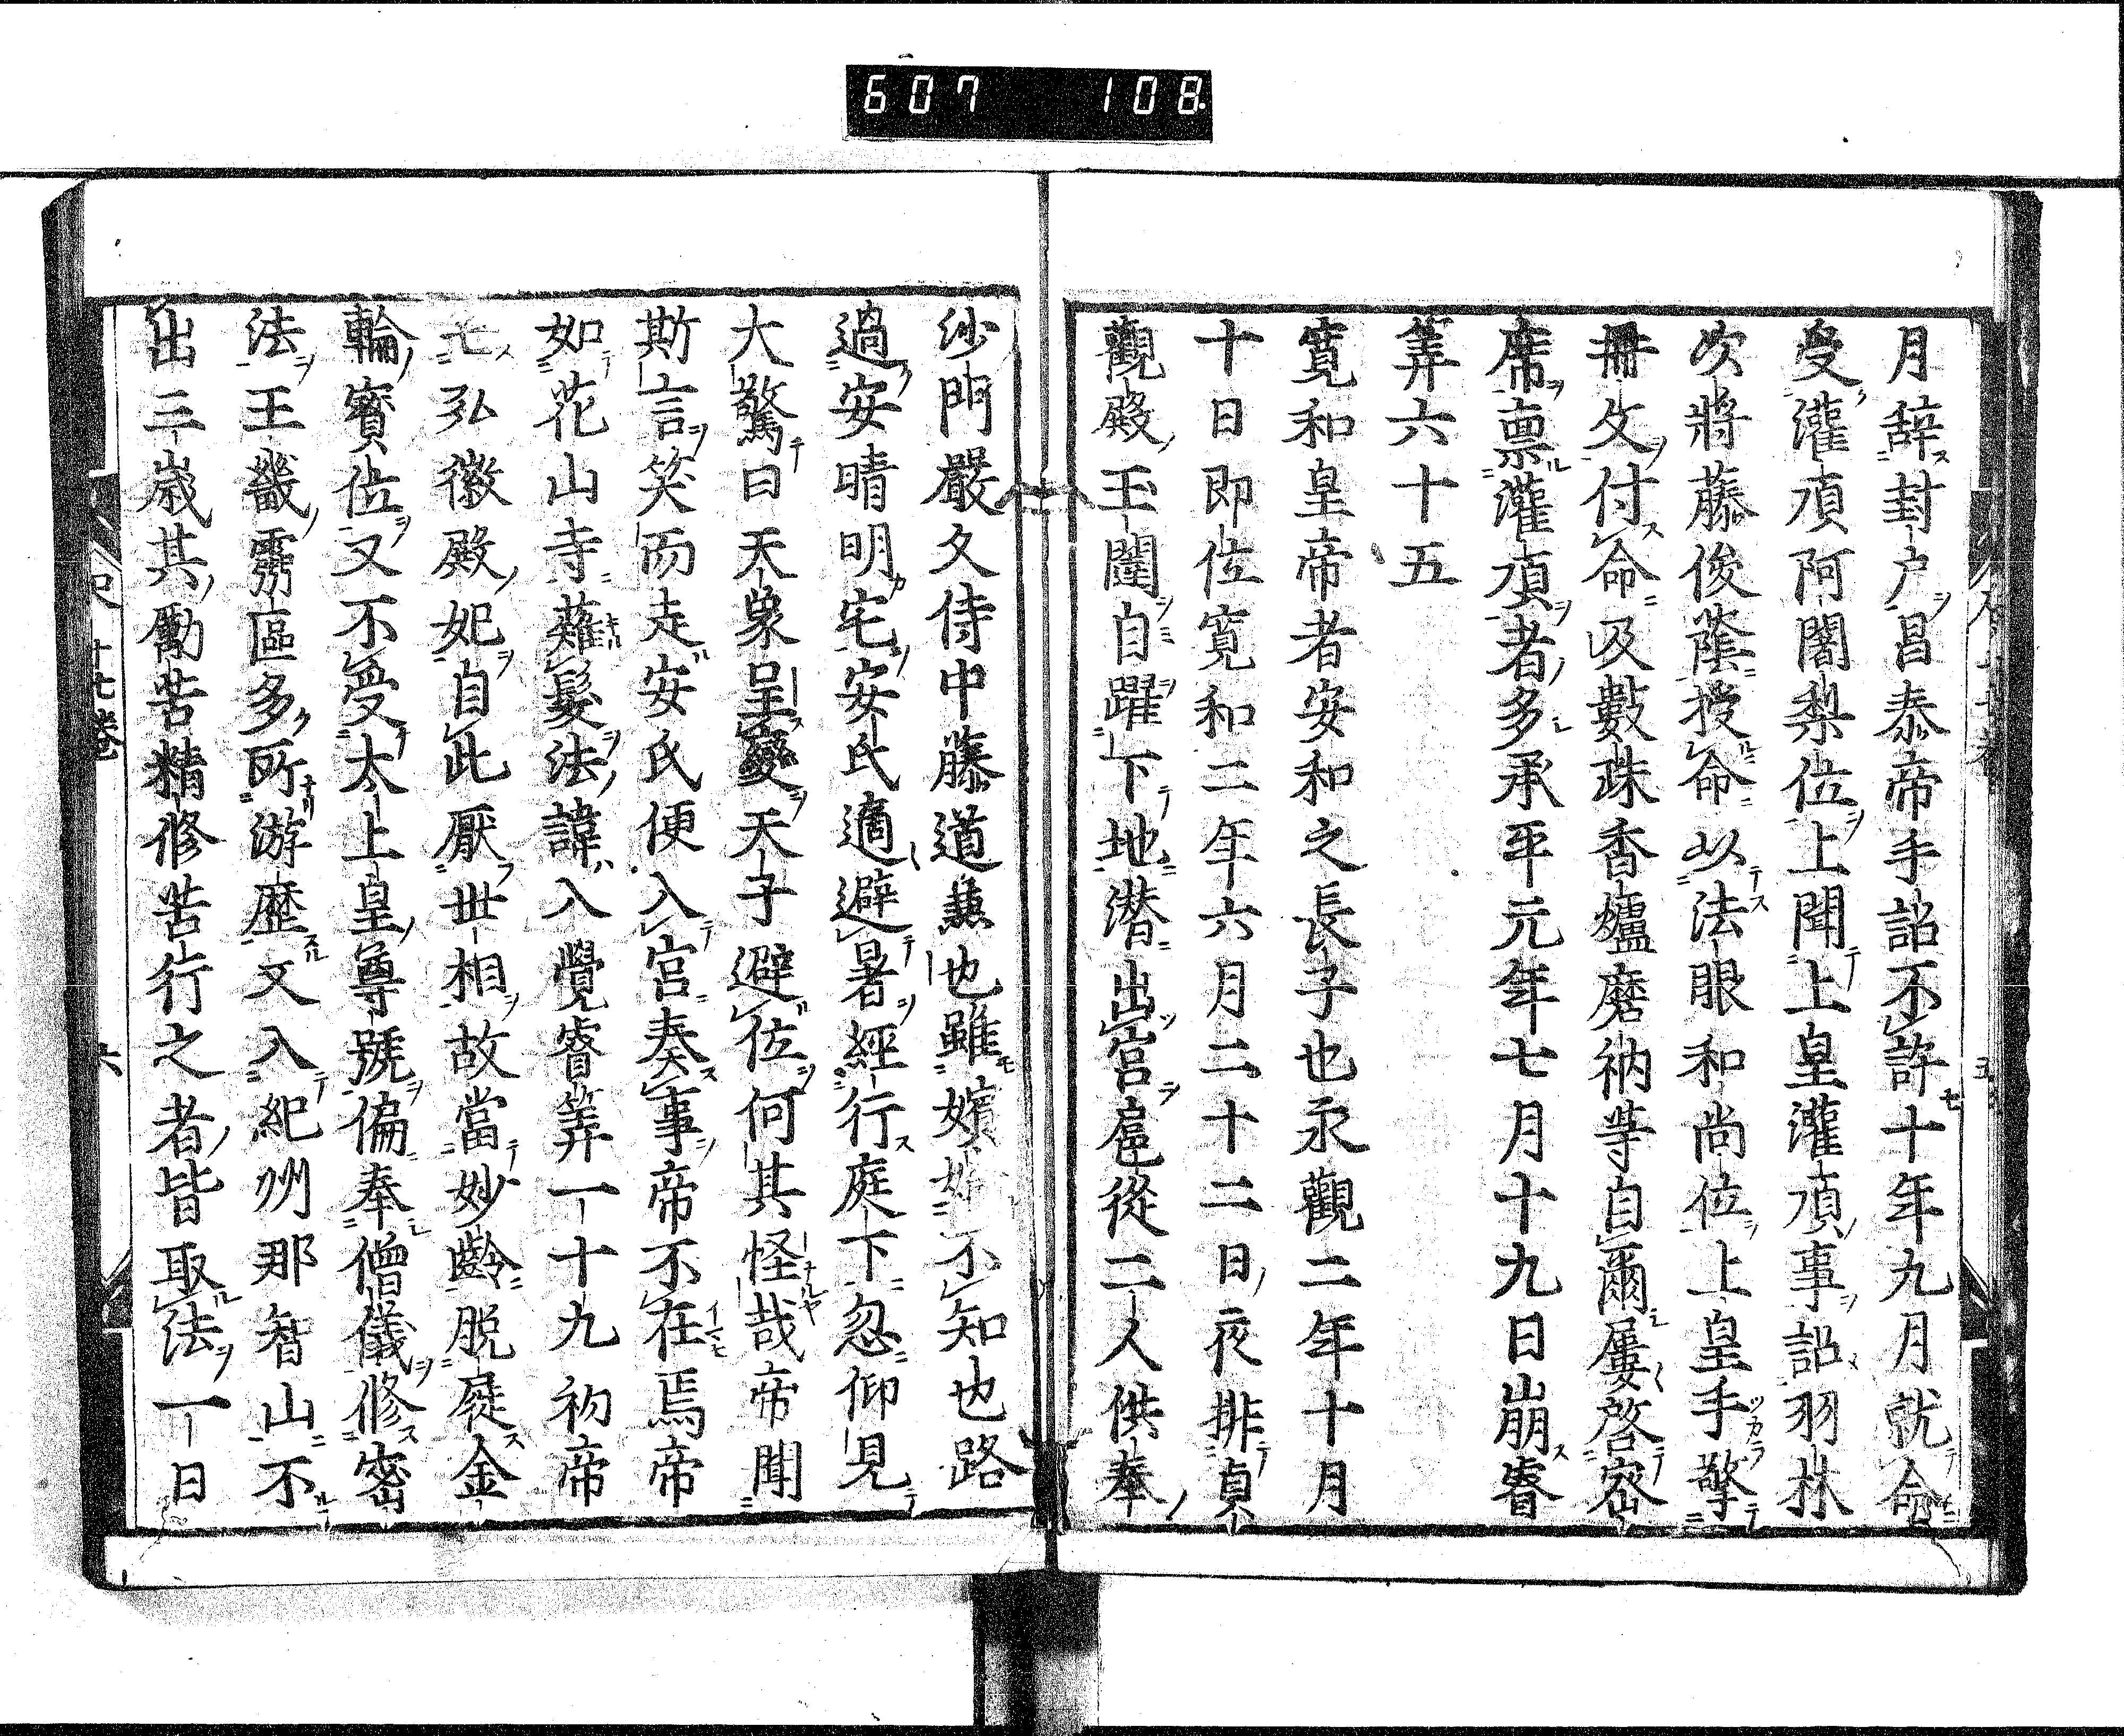 607 108
月辞封户昌泰帝手詔不許十年九月就命
受灌頂阿闍梨位上聞上皇灌頂事詔羽林
次將藤俊蔭授命以法眼和尚位上皇手擎
冊文付命及數珠香爐磨衲等自爾屢啓密
席稟灌頂者多承平元年七月十九日崩睿
筭六十五
寛和皇帝者安和之長子也永觀二年十月
十日即位寛和二年六月二十二日夜排貞
觀殿玉闥自躍下地潜出宮扈從二人供奉
沙門嚴久侍中藤道兼也雖嬪不知也路
過安晴明宅安氏適避暑經行庭下忽仰見
大驚曰天象呈變天子避位何其怪哉帝聞
斯言笑而走安氏便入宮奏事帝不在焉帝
如花山寺薙髮法諱入覺睿筭一十九初帝
亡弘徽殿妃自此厭世相故當妙齡脱屣金
輪寳位又不受太上皇尊號偏奉僧儀修密
法王畿靈區多所游歴又入紀州那智山不
出三歳其勵苦精修苦行之者皆取法一日
十七卷
六